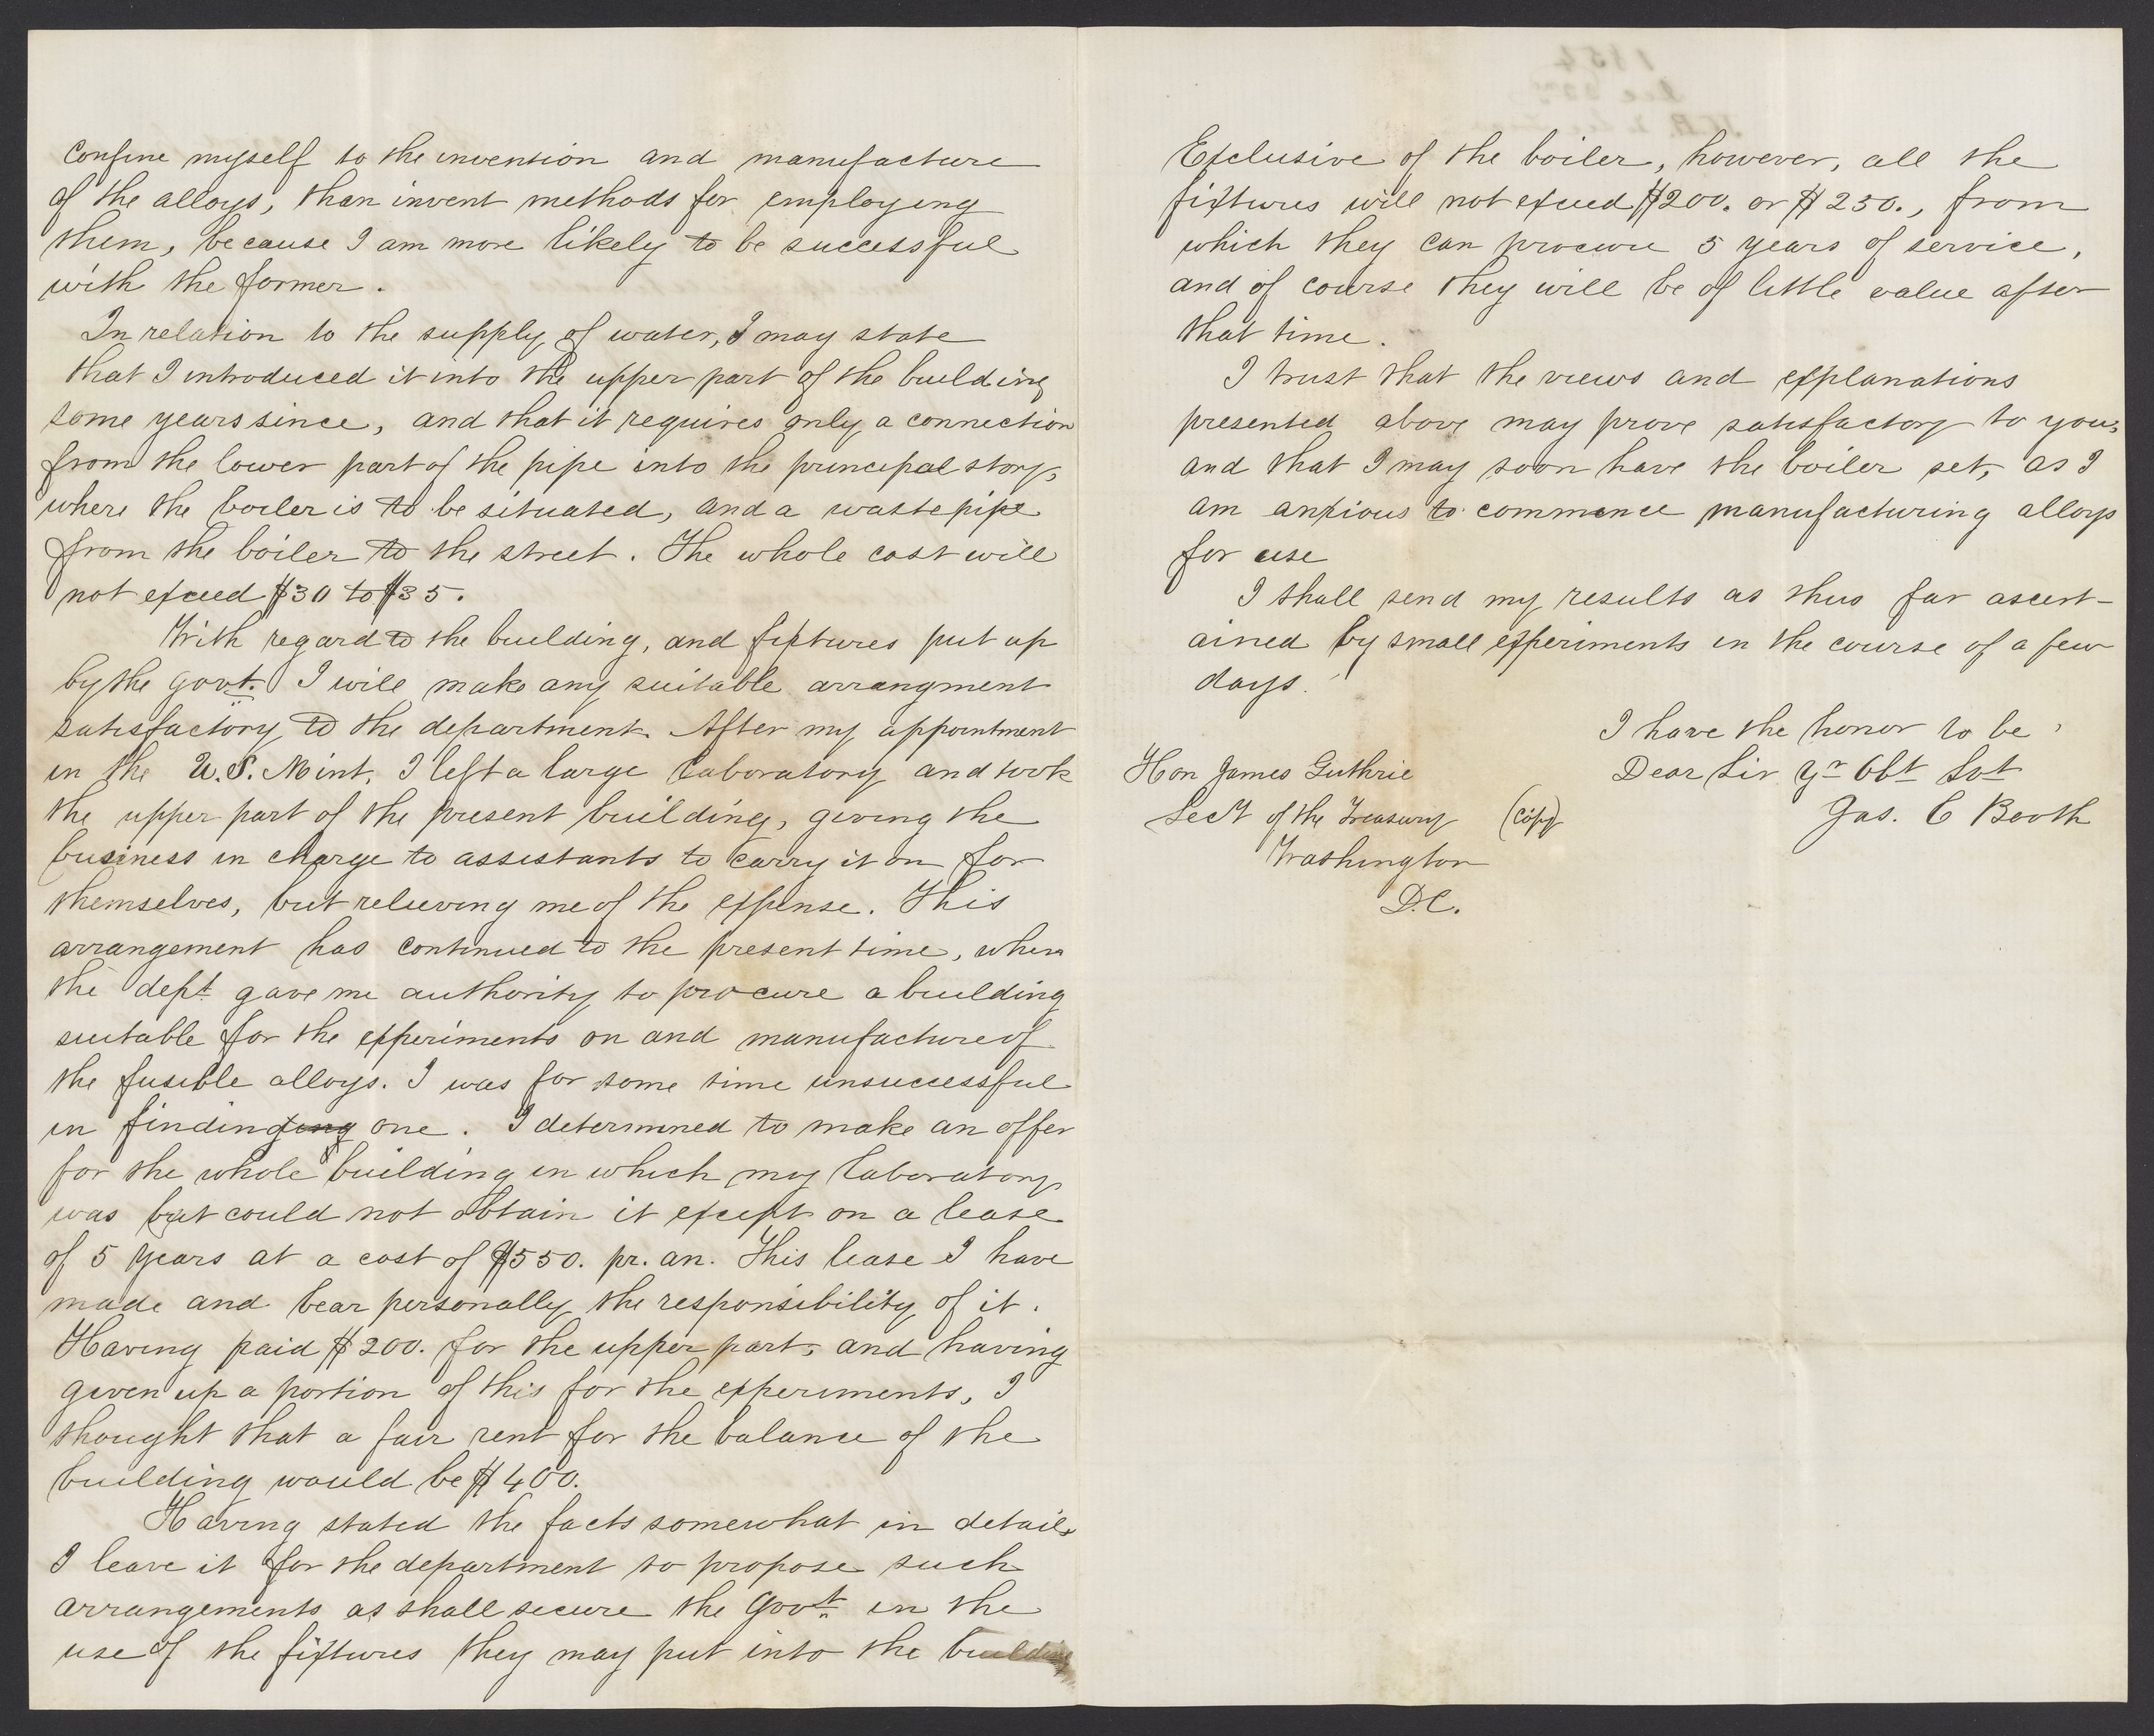 confine myself to the invention and manufacture
of the alloys, than invent methods for employing
them, because I am more likely to be successful
with the former.
In relation to the supply of water, I may state
that I introduced it into the upper part of the building
some years since, and that it requires only a connection
from the lower part of the pipe into the principal story,
where the boiler is to be situated, and a waste pipe
from the boiler to the street. The whole cost will
not exceed $30 to $35.
With regard to the building, and fixtures put up
by the govt. I will make any suitable arrangment
satisfactory to the department. After my appointment
in the U.S. Mint, I left a large laboratory and took
the upper part of the present building, giving the
business in charge to assistants to carry it on for
themselves, but relieving me of the expense. This
arrangement has continued to the present time, when
the dept gave me authority to procure a building
suitable for the experiments on and manufacture of
the fusible alloys. I was for some time unsuccessful
in finding one. I determined to make an offer
for the whole building in which my laboratory
was but could not obtain it except on a lease
of 5 years at a cost of $550. pr. an. This lease I have
made and bear personally the responsibility of it.
Having paid $200. for the upper part, and having
given up a portion of this for the experiments, I
thought that a fair rent for the balance of the
building would be $400.
Having stated the facts somewhat in detail,
I leave it for the department to propose such
arrangements as shall secure the Govt. in the
use of the fixtures they may put into the building
Exclusive of the boiler, however, all the
fixtures will not exceed $200. or $250., from
which they can procure 5 years of service,
and of course they will be of little value after
that time.
I trust that the views and explanations
presented above may prove satisfactory to you,
and that I may soon have the boiler set, as I
am anxious to commence manufacturing alloys
for use
I shall send my results as thus far ascert-
ained by small experiments in the course of a few
days.
I have the honor to be,
Dear Sir yr Obt Svt
Jas. C Booth
Hon James Guthrie
Sect of the Treasury (Copy)
Washington
D.C.